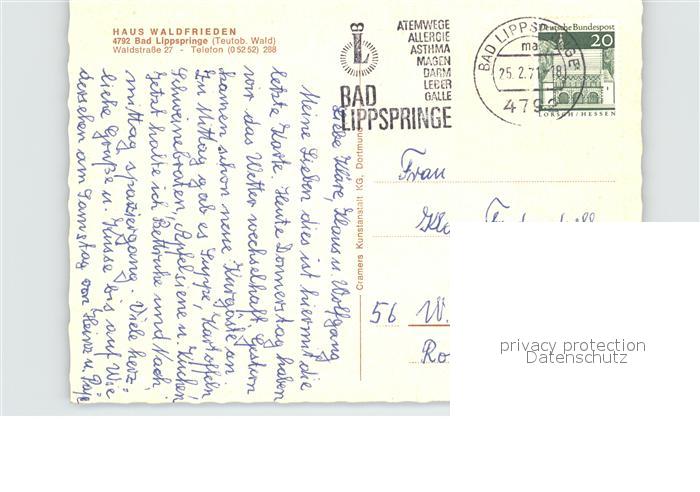 HAUS WALDFRIEDEN
4792 Bad Lippspringe (Teutob. Wald)
Waldstraße 27 - Telefon (0 52 52) 288
Liebe Kläre, Klaus u. Wolfgang
Meine Lieben dies ist hiermit die
letzte Karte. Heute Donnerstag haben
wir das Wetter wechselhaft. Gestern
kamen schon neue Kurgäste an
Zu Mittag gab es Suppe, Kartoffeln
Schweinebraten, Apfelsiene u. Kuchen
Jetzt halte ich Bettruhe und Nach,
mittag spaziergang. Viele herz=
liche Grüße u. Küsse bis auf Wie
dersehen am Samstag von Heinz u. Papa
Cramers Kunstanstalt KG, Dortmund
L
BAD
LIPPSPRINGE
ATEMWEGE
ALLERGIE
ASTHMA
MAGEN
DARM
LEBER
GALLE
BAD LIPPSPRINGE
ma
25.2.71-18
4792
Deutsche Bundespost
20
LORSCH/HESSEN
Frau
56 W.
privacy protection
Datenschutz